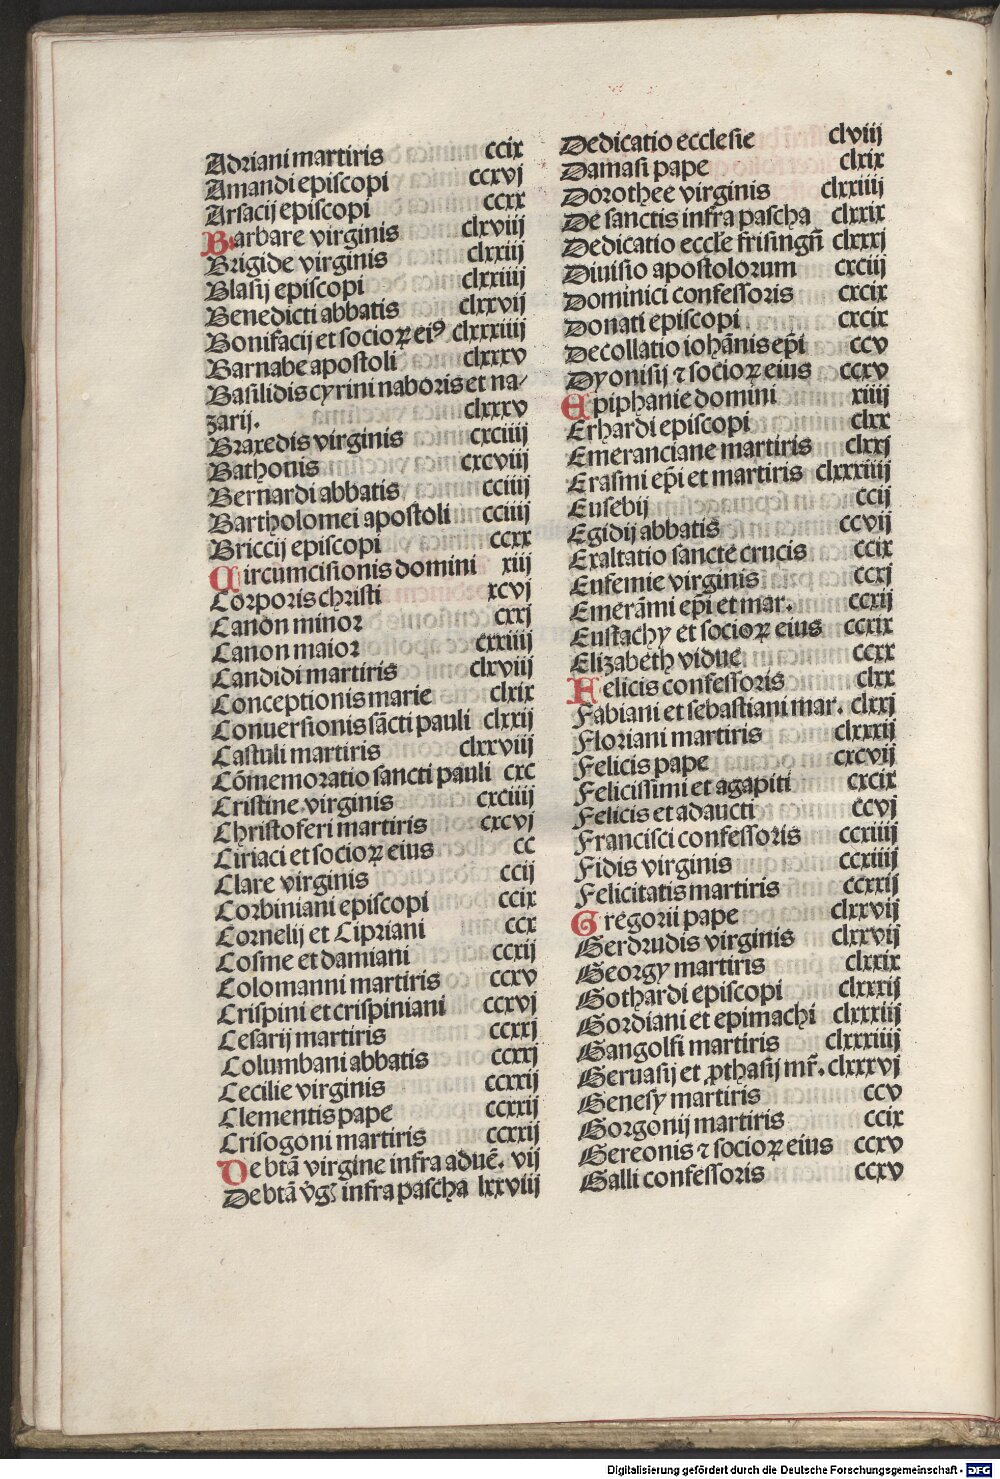 Adriani martiris ccix
Amandi episcopi ccxvj
Arsacij episcopi ccxx
Barbare virginis clxviij
Brigide virginis clxxiij
Blasij episcopi clxxiiij
Benedicti abbatis clxxvij
Bonifacij et socioꝝ eiꝰ clxxxiiij
Barnabe apostoli clxxxv
Basilidis cyrini naboris et na⸗
zarij. clxxxv
Braxedis virginis cxciiij
Bathonis cxcviij
Bernardi abbatis cciiij
Bartholomei apostoli cciiij
Briccij episcopi ccxx
Circumcisionis domini xiij
Corporis christi xcvj
Canon minor cxxj
Canon maior cxxiiij
Candidi martiris clxviij
Conceptionis marie clxix
Conuersionis sācti pauli clxxij
Castuli martiris clxxviij
Cōmemoratio sancti pauli cxc
Cristine virginis cxciiij
Christoferi martiris cxcvj
Ciriaci et socioꝝ eius cc
Clare virginis ccij
Corbiniani episcopi ccix
Cornelij et Cipriani ccx
Cosme et damiani ccxij
Colomanni martiris ccxv
Crispini et crispiniani ccxvj
Cesarij martiris ccxxj
Columbani abbatis ccxxj
Cecilie virginis ccxxij
Clementis pape ccxxij
Crisogoni martiris ccxxij
De btā virgine infra aduē. vij
De btā v̄gͥ infra pascha lxxviij
Dedicatio ecclesie clviij
Damasi pape clxix
Dorothee virginis clxxiiij
De sanctis infra pascha clxxix
Dedicatio eccl̄e frisingn̄ clxxxj
Diuisio apostolorum cxciij
Dominici confessoris cxcix
Donati episcopi cxcix
Decollatio iohānis ep̄i ccv
Dyonisij ⁊ socioꝝ eius ccxv
Epiphanie domini xiiij
Erhardi episcopi clxx
Emeranciane martiris clxxj
Erasmi ep̄i et martiris clxxxiiij
Eusebij ccij
Egidij abbatis ccvij
Exaltatio sancte crucis ccix
Eufemie virginis ccxj
Emerāmi ep̄i et mar. ccxij
Eustachy et socioꝝ eius ccxix
Elizabeth vidue ccxx
Felicis confessoris clxx
Fabiani et sebastiani mar. clxxj
Floriani martiris clxxxij
Felicis pape cxcvij
Felicissimi et agapiti cxcix
Felicis et adaucti ccvj
Francisci confessoris ccxiiij
Fidis virginis ccxiiij
Felicitatis martiris ccxxij
Gregorii pape clxxvij
Gerdrudis virginis clxxvij
Georgy martiris clxxix
Gothardi episcopi clxxxij
Gordiani et epimachi clxxxiij
Gangolfi martiris clxxxiiij
Geruasij et ꝓthasij mr̄. clxxxvj
Genesy martiris ccv
Gorgonij martiris ccix
Gereonis ⁊ socioꝝ eius ccxv
Galli confessoris ccxv
Digitalisierung gefördert durch die Deutsche Forschungsgemeinschaft - DFG